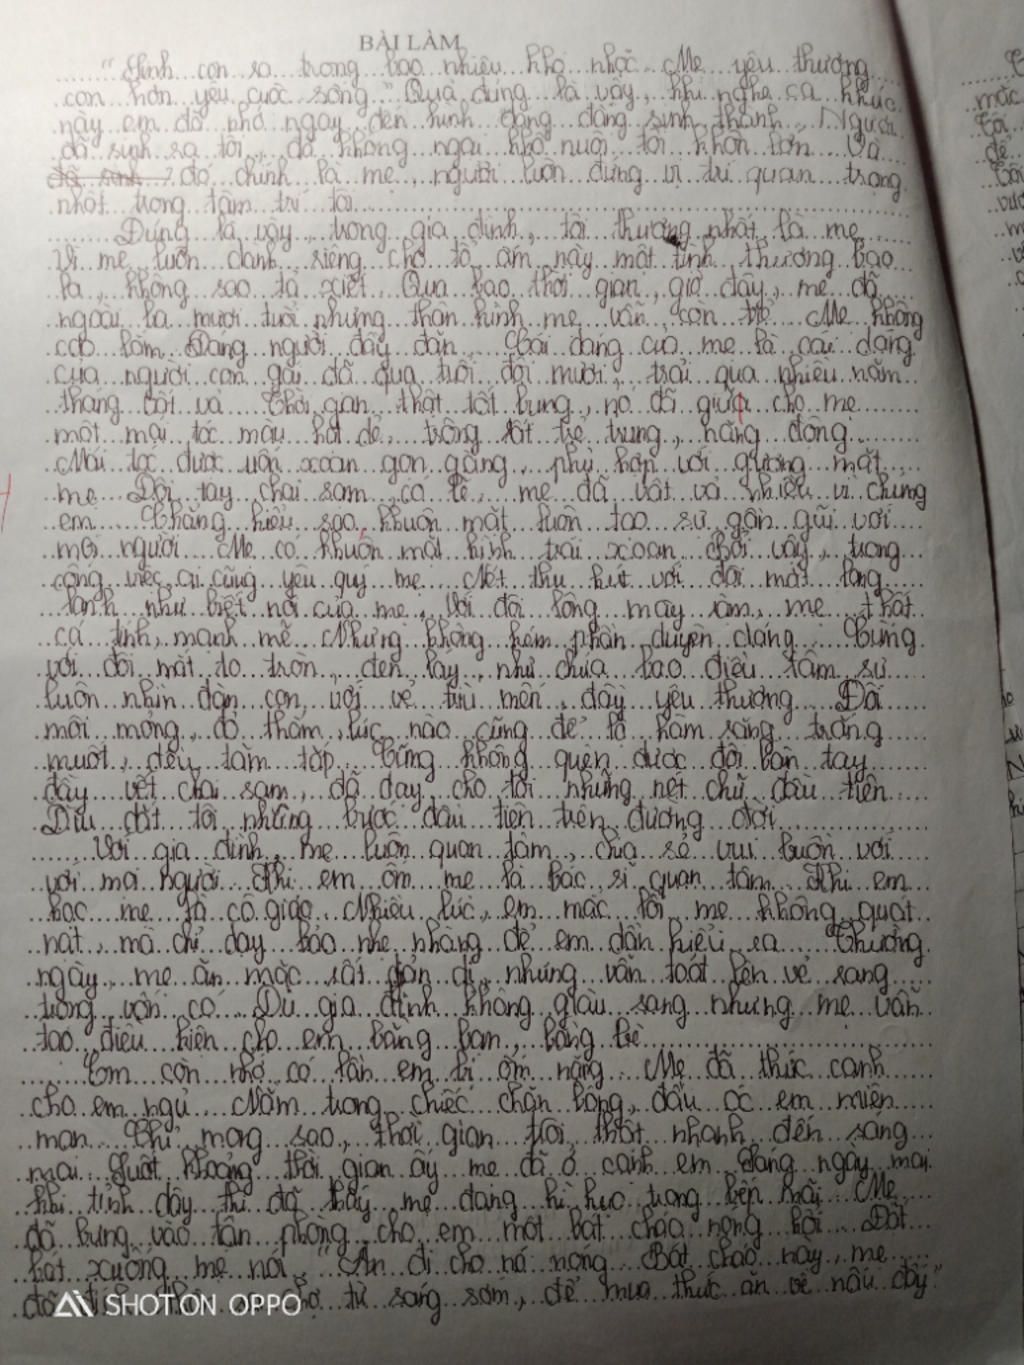 BÀI LÀM
"Sinh con ra trong bao nhiêu khó nhọc. Mẹ yêu thương
con hơn yêu cuộc sống." Quả đúng là vậy, khi nghe ca khúc
này em đã nhớ ngay đến hình dáng đấng sinh thành. Người
đã sinh ra tôi, đã không ngại khó nuôi tôi khôn lớn. Và
đó chính là mẹ, người luôn đứng vị trí quan trọng
nhất trong tâm trí tôi.
Đúng là vậy, trong gia đình, tôi thương nhất là mẹ.
Vì mẹ luôn dành riêng cho tổ ấm này một tình thương bao
la, không sao tả xiết. Qua bao thời gian, giờ đây, mẹ đã
ngoài ba mươi tuổi nhưng thân hình mẹ vẫn còn trẻ. Mẹ không
cao lắm. Dáng người đầy đặn. Cái dáng của mẹ là cái dáng
của người con gái đã qua tuổi đôi mươi, trải qua nhiều năm
tháng vất vả. Thời gian thật tốt bụng, nó đã giữ cho mẹ
một mái tóc màu hạt dẻ, trông rất trẻ trung, năng động.
Mái tóc được uốn xoăn gọn gàng, phù hợp với gương mặt
mẹ. Đôi tay chai sạm, có lẽ, mẹ đã vất vả nhiều vì chúng
em. Chẳng hiểu sao, khuôn mặt luôn tạo sự gần gũi với
mọi người. Mẹ có khuôn mặt hình trái xoan. Bởi vậy, trong
công việc ai cũng yêu quý mẹ. Nét thu hút với đôi mắt long
lanh như biết nói của mẹ. Với đôi lông mày rậm, mẹ thật
cá tính, mạnh mẽ. Nhưng không kém phần duyên dáng. Cùng
với đôi mắt to tròn, đen láy, như chứa bao điều tâm sự
luôn nhìn đàn con với vẻ trìu mến, đầy yêu thương. Đôi
môi mỏng, đỏ thắm, lúc nào cũng để lộ hàm răng trắng
muốt, đều tăm tắp. Cũng không quên được đôi bàn tay
đầy vết chai sạm, đã dạy cho tôi những nét chữ đầu tiên.
Dìu dắt tôi những bước đầu tiên trên đường đời.
Với gia đình, mẹ luôn quan tâm, chia sẻ vui buồn với
với mọi người. Khi em ốm mẹ là bác sĩ quan tâm. Khi em
học mẹ là cô giáo. Nhiều lúc, em mắc lỗi mẹ không quát
nạt, mà chỉ dạy bảo nhẹ nhàng để em dần hiểu ra. Thường
ngày, mẹ ăn mặc rất giản dị, nhưng vẫn toát lên vẻ sang
trọng vốn có. Dù gia đình không giàu sang nhưng mẹ vẫn
tạo điều kiện cho em bằng bạn, bằng bè.
Em còn nhớ có lần em bị ốm nặng. Mẹ đã thức canh
cho em ngủ. Nằm trong chiếc chăn bông, đầu óc em miên
man. Chỉ mong sao, thời gian trôi thật nhanh đến sáng
mai. Suốt khoảng thời gian ấy mẹ đã ở cạnh em. Sáng ngày mai
khi tỉnh dậy thì đã thấy mẹ đang hì hục trong bếp rồi. Mẹ
đã bưng vào tận phòng cho em một bát cháo nóng hổi. Đặt
bát xuống mẹ nói, "Ăn đi cho nó nóng. Bát cháo này, mẹ
chợ từ sáng sớm, để mua thức ăn về nấu đấy"
SHOT ON OPPO